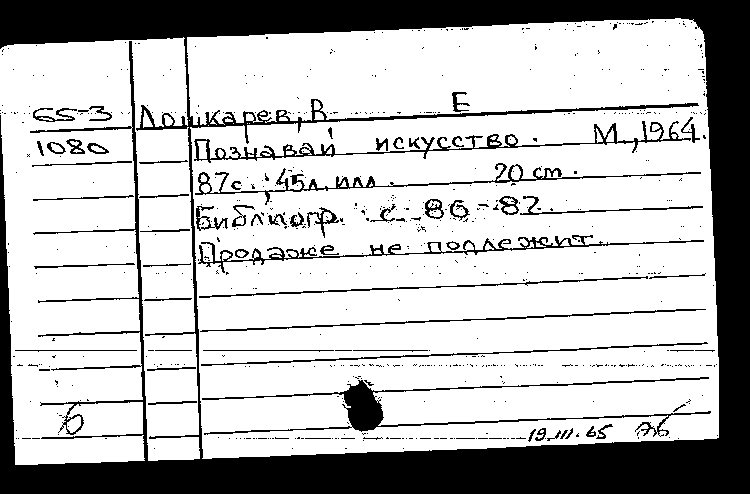 65-3 Лошкарев, В. Е
1080 Познавай искусство. М., 1964.
87с.; 45л. илл. 20 cm.
Библиогр. с 86-87.
Продаже не подлежит.
б 19.III.65